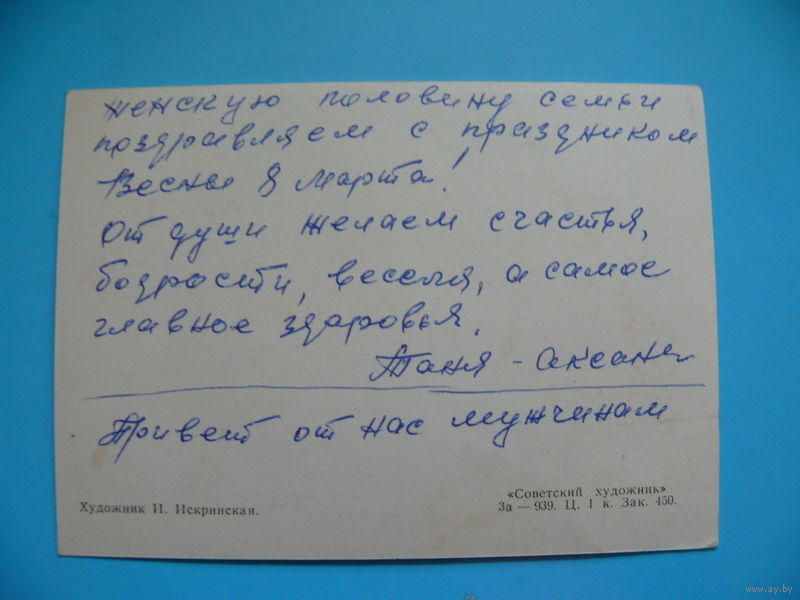 женскую половину семьи
поздравляем с праздником
Весны 8 марта!
От души желаем счастья,
бодрости, веселья, а самое
главное здоровья.
Таня - Аксана
Привет от нас мужчинам
Художник И. Искринская.
«Советский художник»
3а — 939. Ц. 1 к. Зак. 450.
www.ay.by